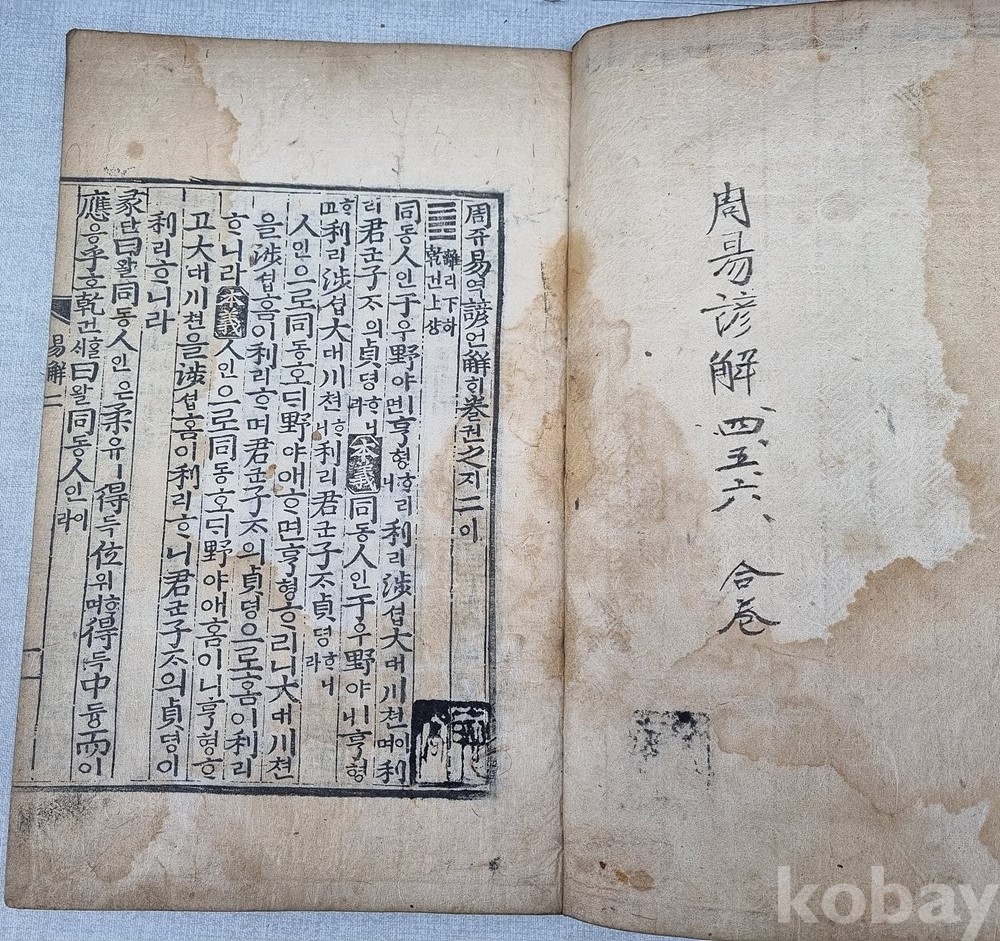 周易諺解 四、五、六、 合卷
周쥬易역諺언解ᄒᆡ卷권之지二이
離리下하
乾건上샹
同동人인于우野야ㅣ면亨형ᄒᆞ리니利리涉섭大대川쳔이며利
리君군子ᄌᆞ의貞뎡ᄒᆞ니라本義同동人인于우野야ㅣ니亨형
ᄒᆞ고利리涉섭大대川쳔ᄒᆞ니利리君군子ᄌᆞ貞뎡ᄒᆞ니라
人인으로同동호ᄃᆡ野야애ᄒᆞ면亨형ᄒᆞ리니大대川쳔
을涉섭홈이利리ᄒᆞ며君군子ᄌᆞ의貞뎡으로홈이利리
ᄒᆞ니라本義人인으로同동호ᄃᆡ野야애홈이니亨형ᄒᆞ
고大대川쳔을涉섭홈이利리ᄒᆞ니君군子ᄌᆞ의貞뎡이
利리ᄒᆞ니라
彖단曰왈同동人인은柔유ㅣ得득位위ᄒᆞ며得득中듕而이
應응乎호乾건ᄒᆞᆯᄉᆡ曰왈同동人인이라
易解 二
kobay